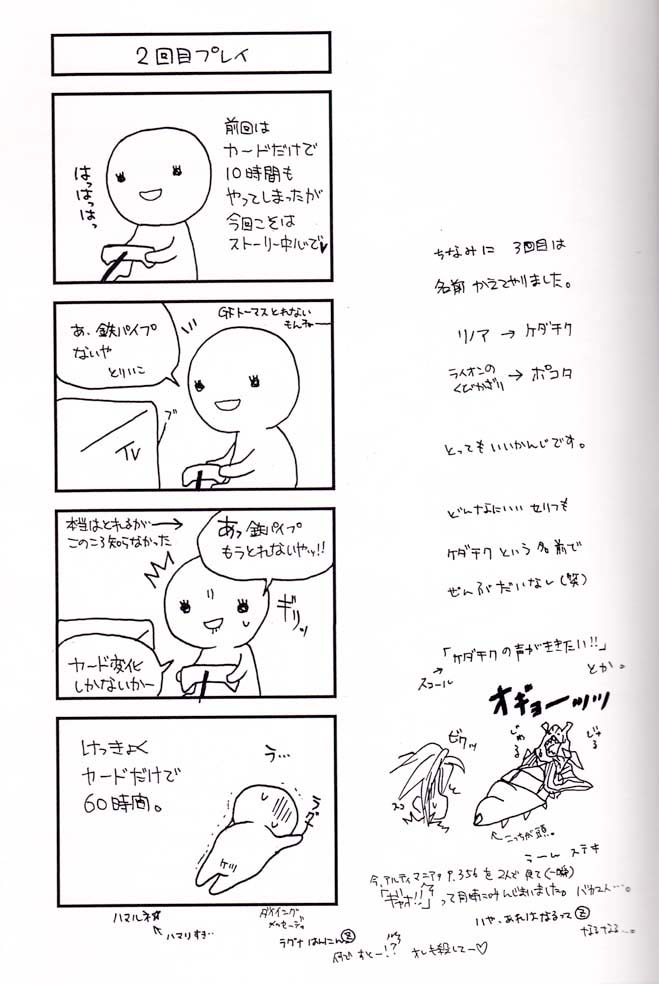 2回目プレイ
前回は
カードだけで
10時間も
やってしまったが
今回こそは
ストーリー中心で♥
はっはっはっ
GFトーマスとれない
もんねー
あ、鉄パイプ
ないや
とりいこ
TV
本当はとれるが→
このころ知らなかった
あっ鉄パイプ
もうとれないやッ!!
ギリッ
カード変化
しかないかー
けっきょく
カードだけで
60時間。
う…
ラグナ
ケツ
ハマルネタ
ハマりすぎ…
ダイイング
メッセージ。
ちなみに 3回目は
名前 かえてやりました。
リノア → ケダチク
ライオンの
くびかざり → ポコタ
とってもいいかんじです。
どんなにいい せりふも
ケダチク という 名前で
ぜんぶ だいなし(笑)
「ケダチクの声がききたい!!」
スコール
とか。
オギョーッッ
じゅる
じゅる
ビクッ
スコ
こっちが頭。
うーん ステキ
今、アルティマニアP.356を2人で見て(一瞬)
「ギャオ!!」って同時に叫んじまいました。バカコンビ…。
いや、あれはなるって
なるなる〜。
ラグナはんにん
何ですとー!?
オレも殺してー♡